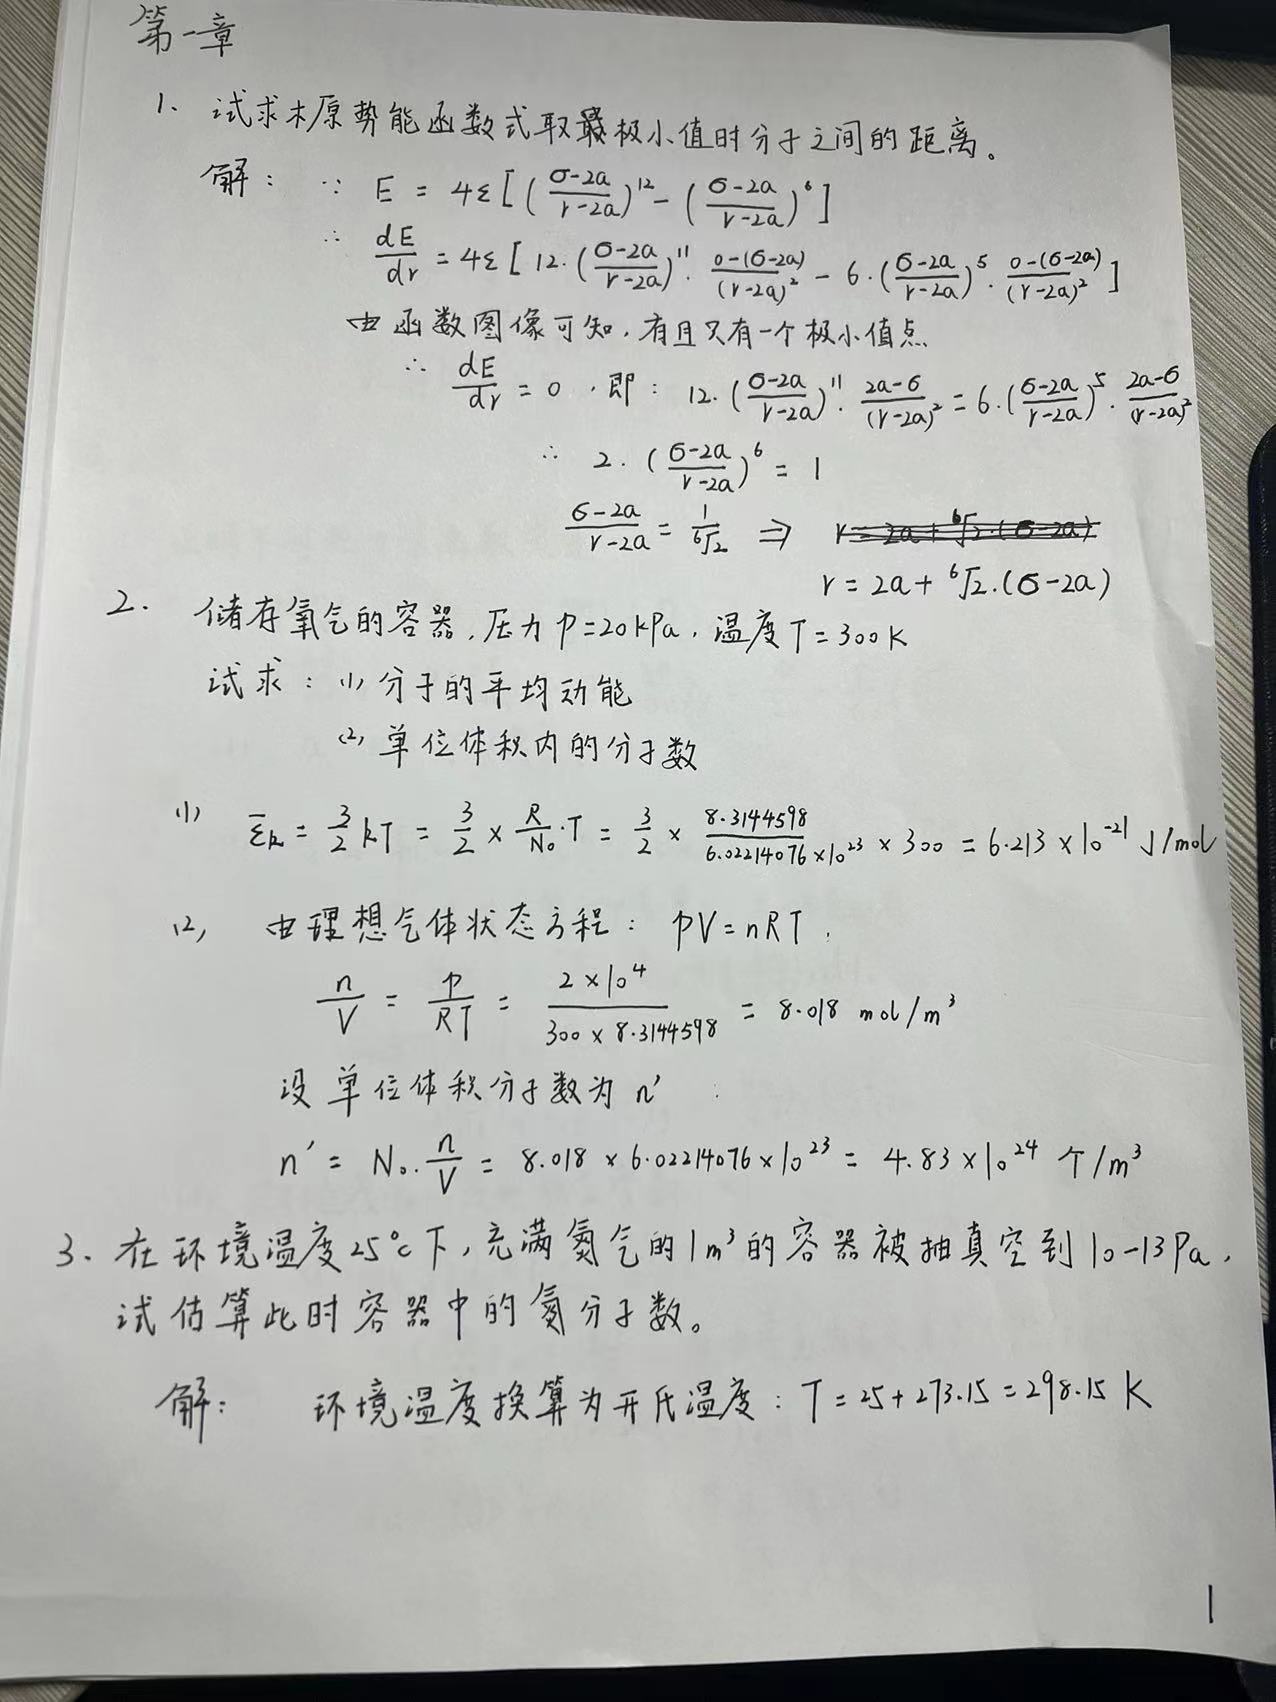 第一章
1、试求木原势能函数式取极小值时分子之间的距离。
解: ∵ E = 4ε[(σ-2a/r-2a)^12 - (σ-2a/r-2a)^6]
∴ dE/dr = 4ε[12·(σ-2a/r-2a)^11 · 0-(σ-2a)/(r-2a)^2 - 6·(σ-2a/r-2a)^5 · 0-(σ-2a)/(r-2a)^2]
由函数图像可知,有且只有一个极小值点
∴ dE/dr = 0,即: 12·(σ-2a/r-2a)^11 · 2a-σ/(r-2a)^2 = 6·(σ-2a/r-2a)^5 · 2a-σ/(r-2a)^2
∴ 2·(σ-2a/r-2a)^6 = 1
σ-2a/r-2a = 1/⁶√2 ⇒ r = 2a + ⁶√2·(σ-2a)
r = 2a + ⁶√2·(σ-2a)
2. 储存氧气的容器,压力p=20kPa,温度T=300K
试求: (1) 分子的平均动能
(2) 单位体积内的分子数
(1) ε̄k = 3/2 kT = 3/2 × R/N₀·T = 3/2 × 8.3144598/6.02214076×10^23 × 300 = 6.213×10^-21 J/mol
(2) 由理想气体状态方程: pV=nRT,
n/V = p/RT = 2×10^4/300×8.3144598 = 8.018 mol/m³
设单位体积分子数为n′
n′ = N₀·n/V = 8.018×6.02214076×10^23 = 4.83×10^24 个/m³
3、在环境温度25℃下,充满氮气的1m³的容器被抽真空到10-13Pa,
试估算此时容器中的氮分子数。
解: 环境温度换算为开氏温度: T=25+273.15=298.15 K
1